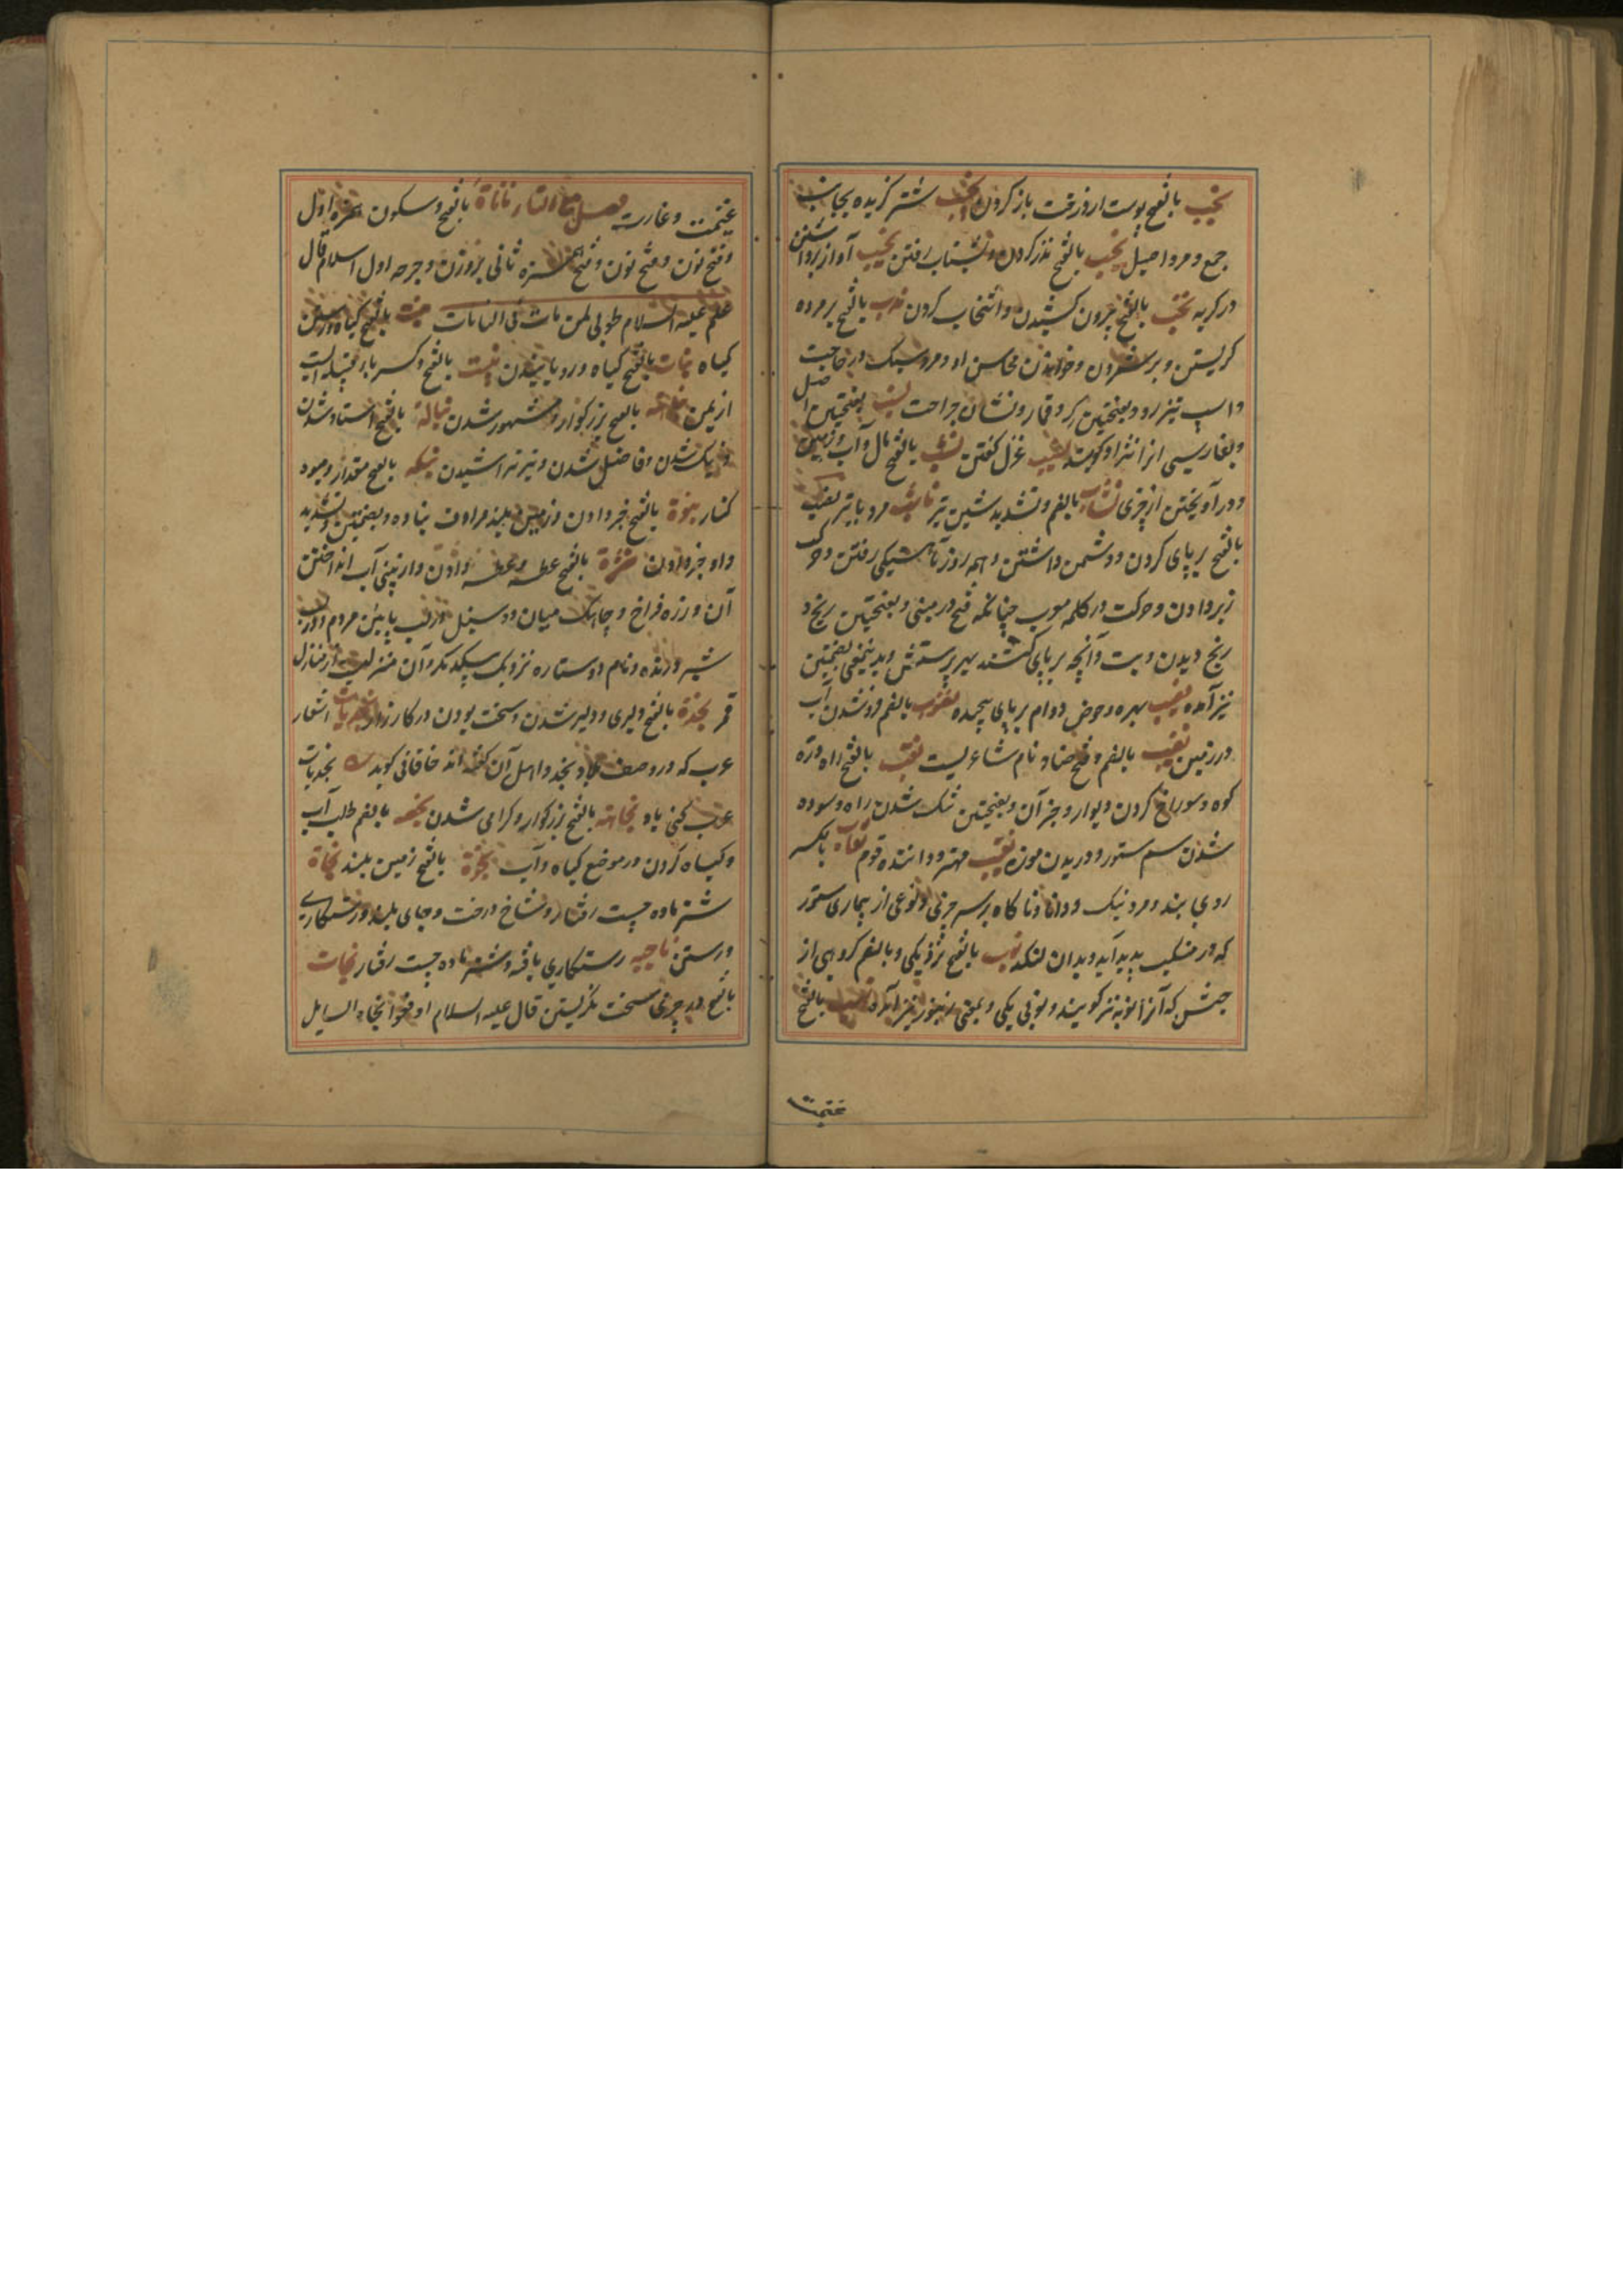 نجب بالفتح پوست از درخت باز کردن نجیب شتر گزیده نجایب
جمع و مرد اصیل نحب بالفتح نذر کردن و بشتاب رفتن نحیب آواز برداشتن
در گریه نخب بالفتح بیرون کشیدن و انتخاب کردن ندب بالفتح بر مرده
گریستن و بر شمردن و خواندن محاسن او و مرد سبک در حاجت
و اسپ تیز رو و بفتحتین گرو قمار و نشان جراحت نسب بفتحتین اصل
و بفارسی آنرا نژاد گویند نسیب غزل گفتن نشب بالفتح مال و آب و زمین
و در آویختن از چیزی نشاب بالضم و تشدید شین تیر ناشب مرد با تیر نصب
بالفتح بر پای کردن و دشمن داشتن و همه روز بآهستگی رفتن و حرکت
زبر دادن و حرکت در کلمه معرب چنانکه فتح در مبنی و بفتحتین رنج و
رنج دیدن و بت و آنچه بر پای کنند بهر پرستش و بدینمعنی بضمتین
نیز آمده نصیب بهره و حوض و دام بر پای پیچیده نضوب بالضم فرو شدن آب
در زمین نصیب بالضم و فتح صاد نام شاعریست نقب بالفتح راه دره
کوه و سوراخ کردن دیوار و جز آن و بفتحتین تنک شدن راه و سوده
شدن سم ستور و دریدن موزه نقیب مهتر و داننده قوم نقاب بالکسر
روی بند و مرد نیک و دانا و ناگاه بر سر چیزی و نوعی از بیماری ستور
که در منکب پدید آید و بدان لنگد نوب بالفتح نزدیکی و بالضم گروهی از
حبش که آنرا نوبه نیز گویند و نوبی یکی و بمعنی زنبور نیز آمده نهب بالفتح
غنیمت
غنیمت و غارت فصل مع التاء ناناة بالفتح و سکون همزه اول
و فتح نون و فتح نون و فتح همزه ثانی بر وزن دحرجه اول اسلام قال
علیه السلام طوبی لمن مات فی النانات نبت بالفتح گیاه و رستن
گیاه نبات بالفتح گیاه و رویانیدن نبت بالفتح و کسر با قبیله ایست
از یمن نباهة بالفتح بزرگوار و مشهور شدن نبالة بالفتح استاد شدن
و نیک شدن و فاضل شدن و تیر تراشیدن نبکه بالفتح مقدار و میوه
کنار نبوة بالفتح خبر دادن و زمین بلند مرادف نباوه و بضمتین و تشدید
واو خبر دادن نثرة بالفتح عطسه و عطسه دادن و از بینی آب انداختن
آن و زره فراخ و چاهک میان دو سبیل و زنب پایین مردم و در لب
شیر درنده و نام دو ستاره نزدیک بیکدیگر و آن منزلیست از منازل
قمر نجدة بالفتح دلیری و دلیر شدن و سخت بودن در کارزار نجدیات اشعار
عرب که در وصف بلاد نجد و اهل آن گفته اند خاقانی گوید نجدیات
عرب کنی یاد نجابة بالفتح بزرگوار و گرامی شدن نجعه بالضم طلب آب
و گیاه کردن در موضع گیاه و آب نجوة بالفتح زمین بلند نجاة
شتر ماده چست رفتار و شاخ درخت و جای بلند و رستگاری
و رستن ناجیه رستگاری یافته و شتر ماده چست رفتار نجات
بالفتح در چیزی سخت نگریستن قال علیه السلام ادفعوا نجاة السایل